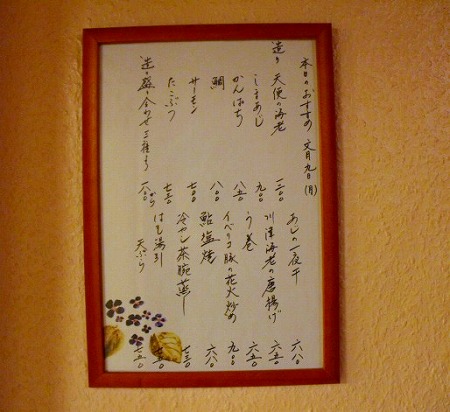 本日のおすすめ 文月九日(月)
造り 天使の海老 一二〇〇
しまあじ 九〇〇
かんぱち 八五〇
鯛 八〇〇
サーモン 七〇〇
たこぶつ 七五〇
造り盛り合わせ 二種より 一八〇〇から
あじの一夜干 六八〇
川津海老の唐揚げ 六五〇
う巻 六五〇
イベリコ豚の花火炒め 九〇〇
鮎塩焼 六八〇
冷やし茶腕蒸し 七五〇
はも湯引 七五〇
天ぷら 七五〇